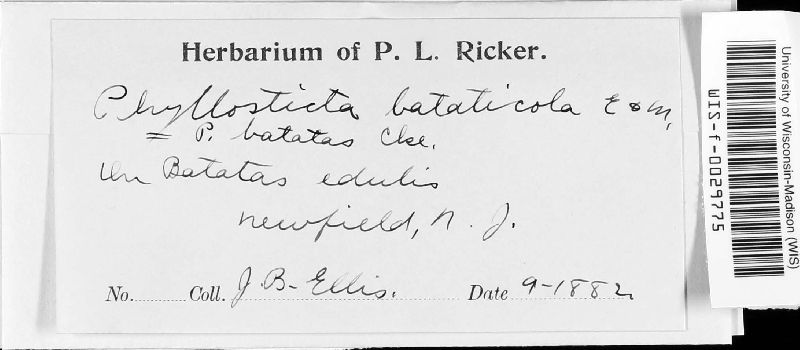 Herbarium of P. L. Ricker.
Phyllosticta bataticola E & M.
= P. batatas Cke.
On Batatas edulis
Newfield, N. J.
No. Coll. J. B. Ellis. Date 9-1882
University of Wisconsin-Madison (WIS)
WIS-f-0029775